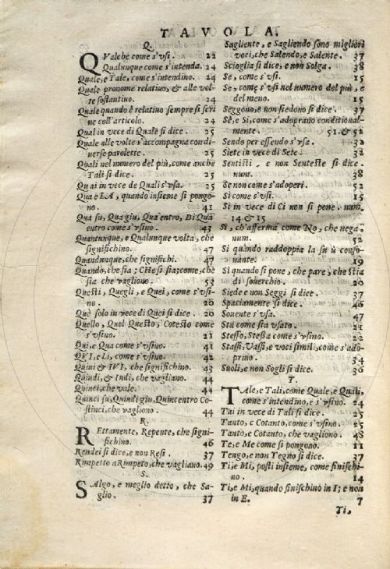 TAVOLA.
Q.
QValche come s'usi. 22
Qualunque come s'intenda. 24
Quale, e Tale, come s'intendino. 24
Quale pronome relatiuo, & alle volte sostantiuo. 24
Quale quando è relatiuo sempre si scriue coll'articolo. 24
Qual in vece di Quale si dice. 25
Quale alle volte s'accompagna con diuerse parolette. 25
Quali nel numero del più, come anche Tali si dice. 25
Quai in vece de Quali s'usa. 25
Qua e LA, quando insieme si pongono. 41
Qua su, Qua giu, Qua entro, Di Qua entro come s'usino. 43
Quantunque, e Qualunque volta, che significhino. 47
Quandunque, che significhi. 47
Quando, che sia; Che si sia; come, che sia che vagliono. 53
Questi, Quegli, e Quei, come s'usino. 20
Què solo in vece di Quei si dice. 20
Quello, Quel Questo, Cotesto come s'usino. 21
Qui, e Qua come s'usino. 41
QVI, e Li, come s'usino. 41
Quini & IVI, che significhino. 41
Quindi, & Indi, che vagliono. 44
Quinci che vale. 44
Quinci su, Quindi giu, Quincentro Costinci, che vagliono. 44
R.
REttamente, Repente, che significhino. 46
Rendei si dice, e non Resi. 37
Rimpetto a Rimpeto, che vagliano. 49
S.
SAlgo, e meglio detto, che Saglio. 37
Sagliente, e Sagliendo sono migliori voci, che Salendo, e Salente. 37
Scioglia si dice, e non Solga. 38
Se, come s'usi. 15
Se, come s'usi nel numero del più, e del meno. 15
Seggono, e non siedono si dice. 37
Sè, e Si, come s'adoprano conditionalmente. 51 & 52
Sendo per essendo s'usa. 32
Siete in vece di Sete. 32
Sentisti, e non Senteste si dice num. 38
Se non come s'adoperi. 52
Si come s'usi. 15
Si in vece di Ci non si pone. num. 14 & 15
Si, ch'afferma come No, che nega num. 52
Si quando raddoppia la se ò consonante. 19
Si quando si pone, che pare, che stia di souerchio. 20
Siede e non Seggi si dice. 37
Spaciamente si dice. 46
Souente s'usa. 47
Sta come sia usato. 21
Stesso, Stessa come s'usino. 22
Staffi, Vassi, e voci simili, come s'adoprino. 54
Suoli, e non Sogli si dice. 30
T.
TAle, e Tali, come Quale, e Quali, come s'intendino, e s'usino. 24
Tai in vece di Tali si dice. 25
Tanto, e Cotanto, come s'usino. 25
Tanto, e Cotanto, che vagliono. 48
Te, e Me come si pongono. 12
Tengo, e non Tegno si dice. 37
Ti, e Mi, posti insieme, come finischino. 14
Ti, e Mi, quando finischino in I; e non in E. 7
Ti,